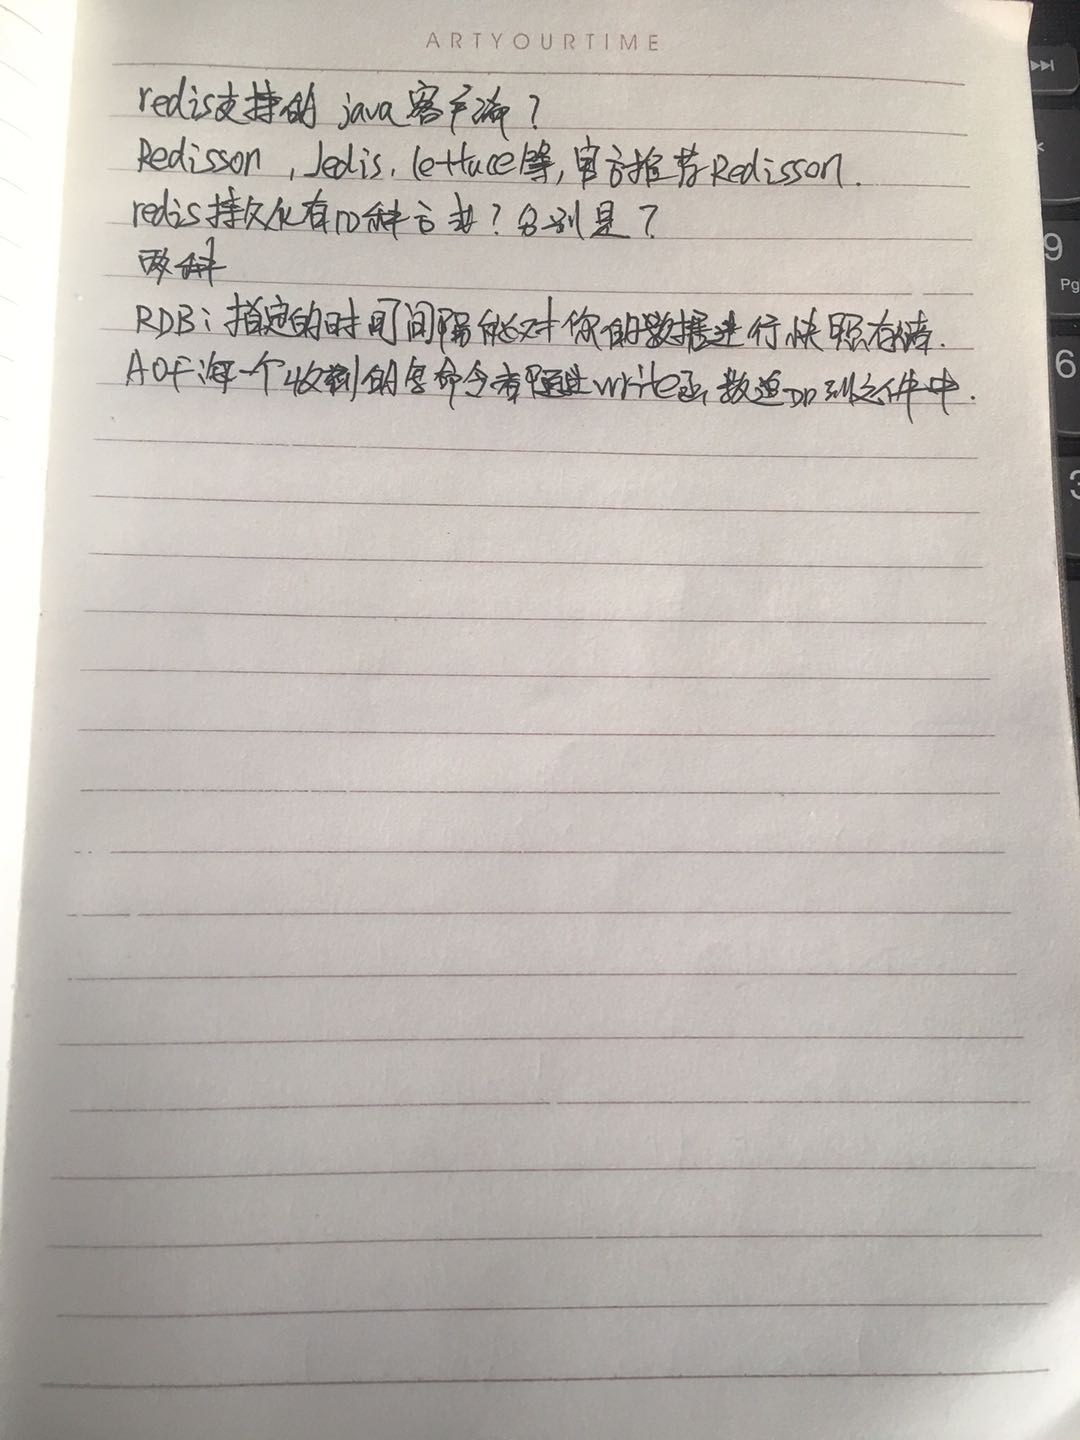 ARTYOURTIME
redis支持的 java客户端?
Redisson , Jedis, lettuce等,官方推荐Redisson.
redis持久化有几种方式?分别是?
两种
RDB:指定的时间间隔能对你的数据进行快照存储.
AOF:每一个收到的写命令都通过write函数追加到文件中.
9
Pg
6
3